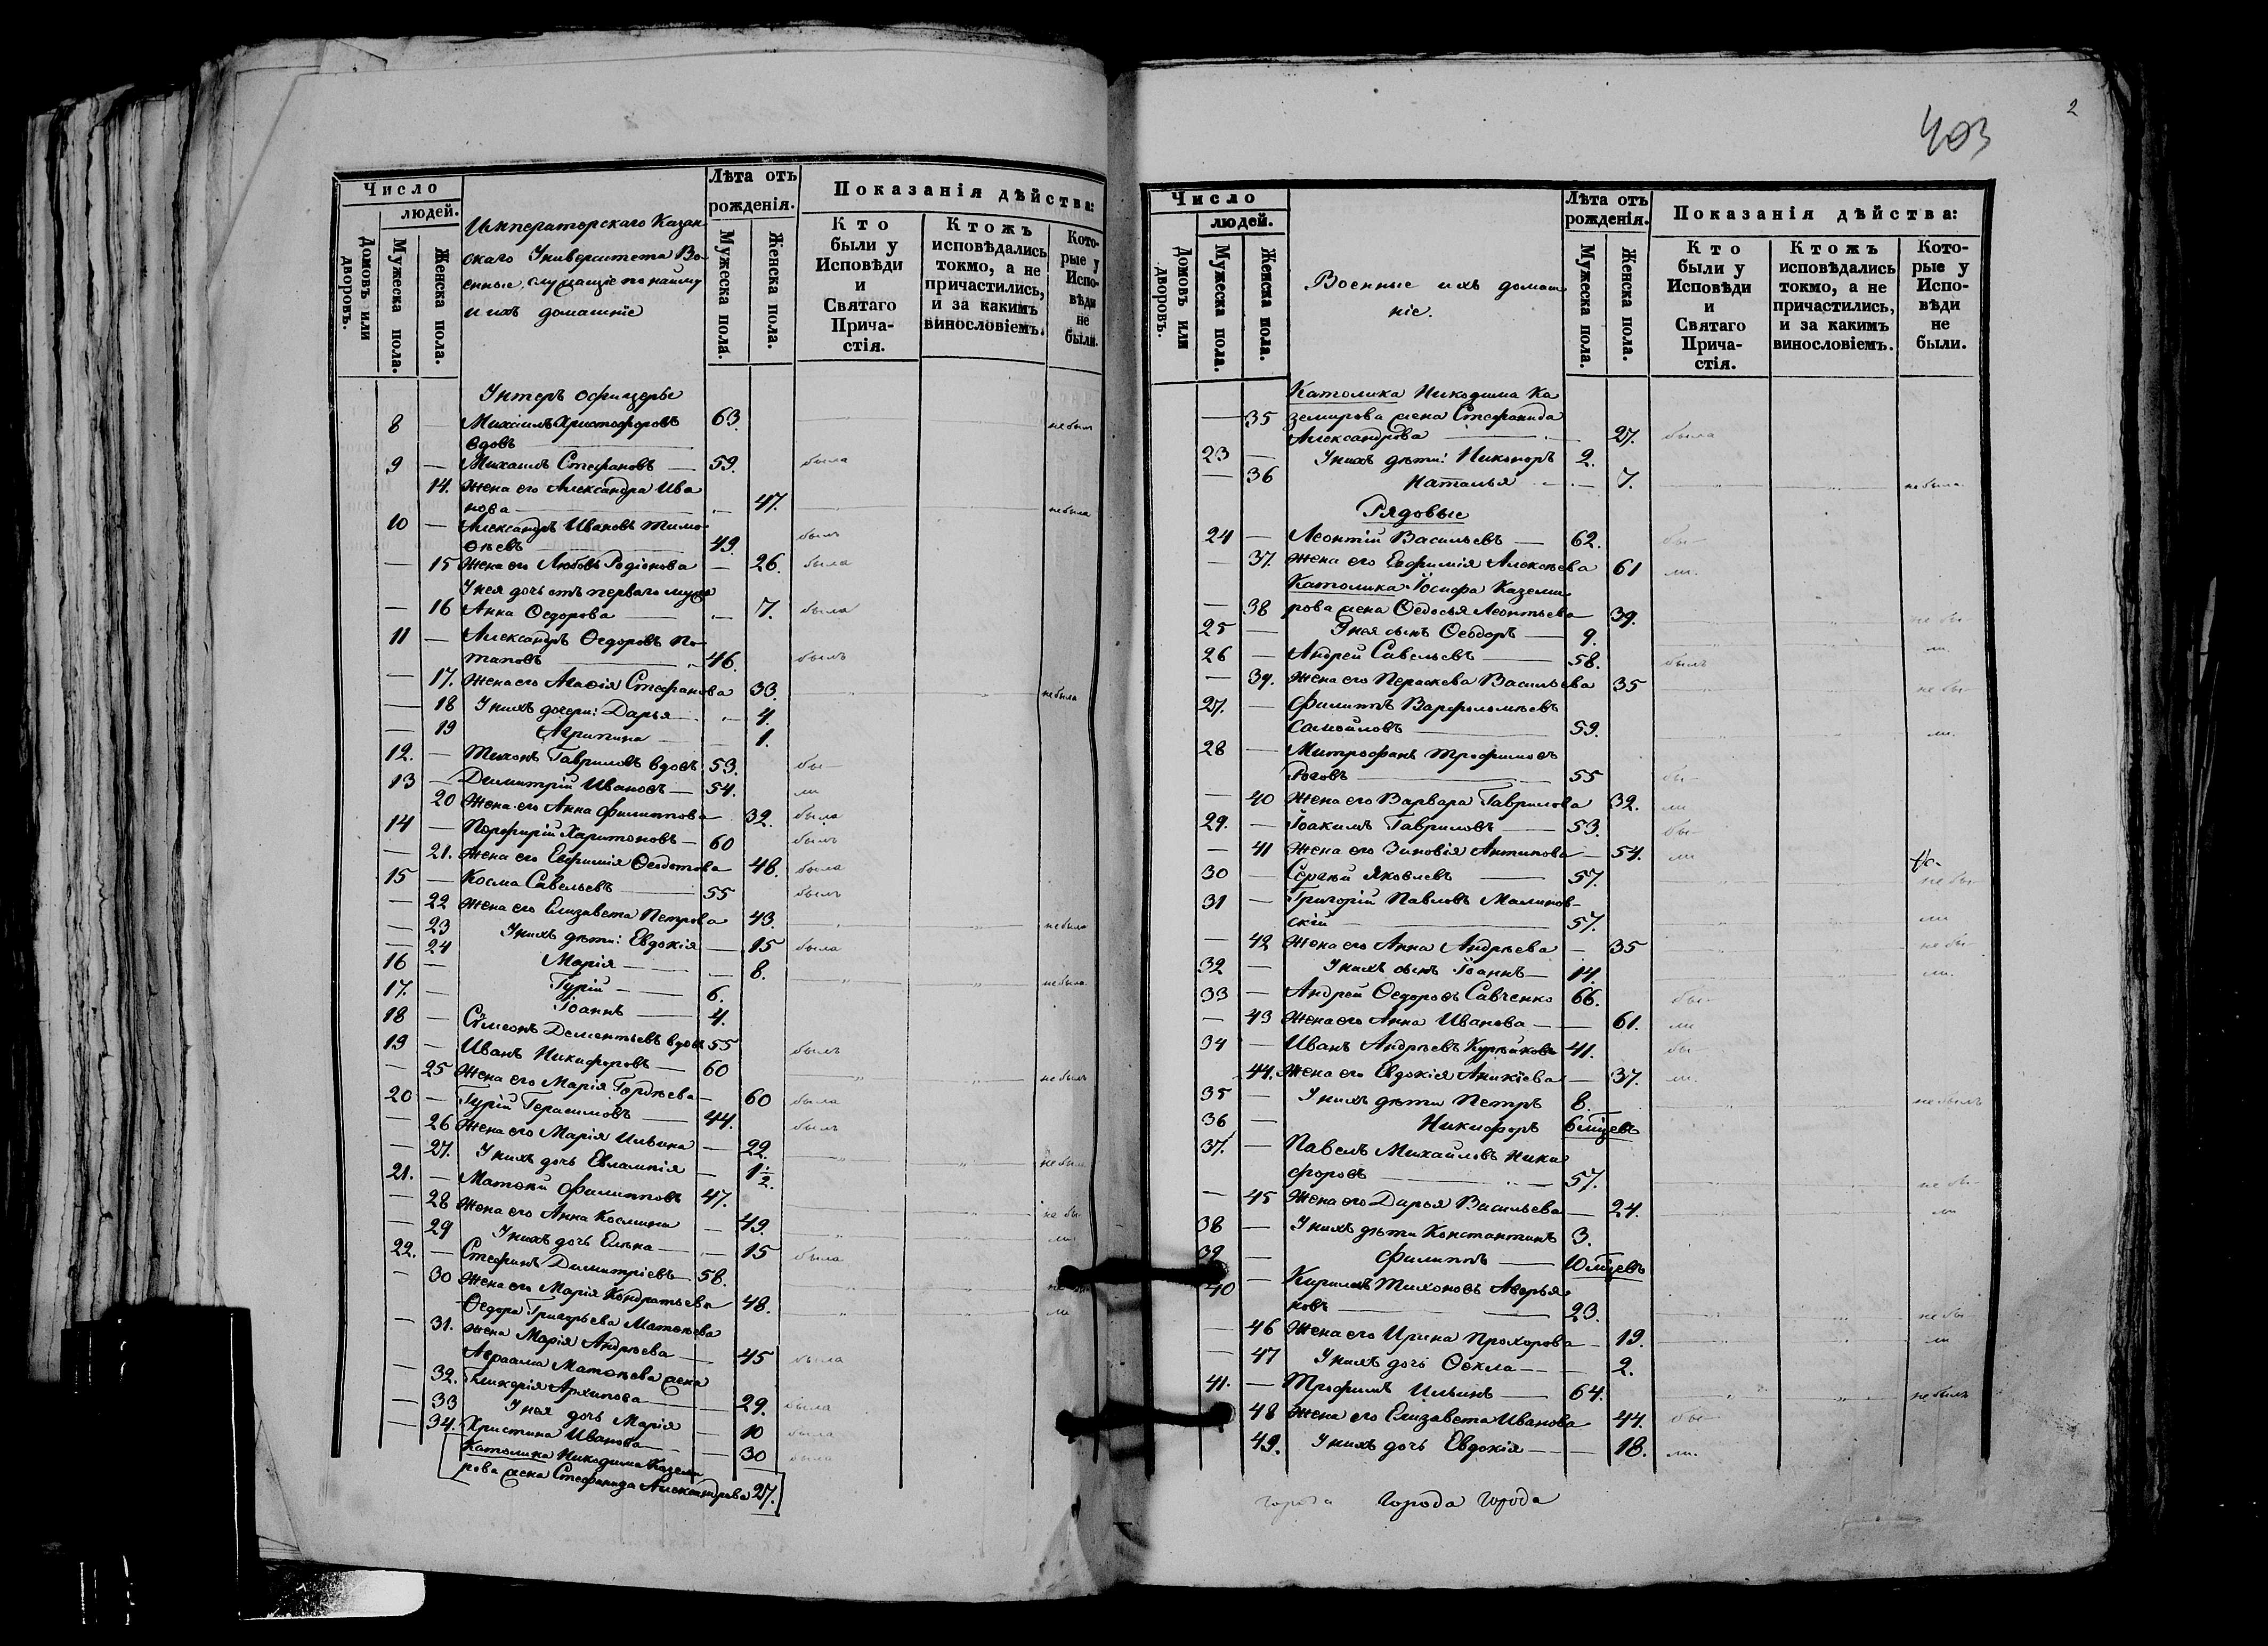 Число
людей.
Домовъ или дворовъ.
Мужеска пола.
Женска пола.
Императорскаго Казан-
скаго Университета Во-
енные, служащіе по найму
и ихъ домашніе
Лѣта отъ
рожденія.
Мужеска пола.
Женска пола.
Показанія дѣйства:
Кто
были у
Исповѣди
и
Святаго
Прича-
стія.
Ктожъ
исповѣдались
токмо, а не
причастились,
и за какимъ
винословіемъ.
Кото-
рые у
Испо-
вѣди
не
были.
Унтеръ офицеры
8 — Михаилъ Христофоровъ 63. не былъ
вдовъ
9 — Михаилъ Стефановъ — 59. была
14. Жена его Александра Ива
нова — 47. не была
10 — Александръ Ивановъ Тимо-
ѳеевъ 49. былъ
— 15 Жена его Любовь Родіонова — 26. была
У нея дочь отъ перваго мужа
— 16 Анна Ѳедорова — 7. была
11 — Александръ Ѳедоровъ По-
таповъ 46. былъ
— 17. Жена его Агаѳія Стефанова 33. не была
— 18 У нихъ дочери: Дарья — 4.
— 19 Агрипина — 1.
12. — Тихонъ Гавриловъ вдовъ 53. бы—
13 — Димитрій Ивановъ — 54. ли
20 Жена его Анна Филиппова 32. была
14 — Порфирій Харитоновъ — 60 былъ
— 21. Жена его Евфимія Ѳеодотова 48. была
15 — Косма Савельевъ — 55 былъ
— 22 Жена его Елизавета Петрова 43. не была
— 23 У нихъ дѣти: Евдокія — 15 была
— 24 Марія — 8. не была
16 — Гурій — 6.
17. — Іоаннъ — 4.
18 — Сѵмеонъ Дементьевъ вдовъ 55 былъ
19 — Иванъ Никифоровъ — 60 не былъ
— 25 Жена его Марія Гордѣева — 60 была
20 — Гурій Герасимовъ — 44. былъ
— 26 Жена его Марія Ильина — 22. не была
— 27. У нихъ дочь Евлампія — 1 1/2.
21. — Матѳей Филипповъ 47. не бы-
— 28 Жена его Анна Космина — 49. ли
— 29 У нихъ дочь Елена — 15 была
22. — Стефанъ Димитріевъ — 58. не бы-
— 30 Жена его Марія Кондратьева 48. ли
Ѳедора Григорьева Матѳеева
— 31. жена Марія Андреева — 45 была
Авраама Матѳеева жена
— 32. Гликерія Архипова — 29. была
— 33 У нея дочь Марія — 10 была
— 34. Христина Иванова — 30 была
Католика Никодима Каземи
рова жена Стефанида Александрова 27.
2
403
Число
людей.
Домовъ или дворовъ.
Мужеска пола.
Женска пола.
Военные ихъ домаш
ніе.
Лѣта отъ
рожденія.
Мужеска пола.
Женска пола.
Показанія дѣйства:
Кто
были у
Исповѣди
и
Святаго
Прича-
стія.
Ктожъ
исповѣдались
токмо, а не
причастились,
и за какимъ
винословіемъ.
Кото-
рые у
Испо-
вѣди
не
были.
Католика Никодима Ка
— 35 земирова жена Стефанида
Александрова — 27. была
23 — У нихъ дѣти: Никоноръ 2.
— 36 Наталья — 7. не была
Рядовые
24 — Леонтій Васильевъ — 62. бы—
— 37. Жена его Евфимія Алексѣева 61 ли.
Католика Іосифа Каземи
— 38 рова жена Ѳедосья Леонтьева 39. не бы
25 — У нея сынъ Ѳеодоръ — 9. ли
26 — Андрей Савельевъ — 58. былъ
— 39. Жена его Параскева Васильева 35 не бы—
27. — Филиппъ Варфоломѣевъ
Самойловъ — 59. ли.
28 — Митрофанъ Трофимовъ
Роговъ — 55 бы—
— 40 Жена его Варвара Гаврилова 32. ли
29. — Іоакимъ Гавриловъ — 53. бы—
— 41 Жена его Зиновія Антипова — 54. ли
30 — Сергѣй Яковлевъ — 57. не бы—
31 — Григорій Павловъ Малинов-
скій — 57. ли
— 42 Жена его Анна Андреева — 35 не бы—
32 — У нихъ сынъ Іоаннъ — 14. ли.
33 — Андрей Ѳедоровъ Савченко 66. бы—
— 43 Жена его Анна Иванова — 61. ли
34 — Иванъ Андреевъ 41. бы—
44. Жена его Евдокія Аникіева — 37. ли.
35 — У нихъ дѣти Петръ 8. не былъ
36 — Никифоръ 6 мѣсцевъ
37. — Павелъ Михайловъ Ники
форовъ — 57. не бы—
— 45 Жена его Дарья Васильева — 24. ли
38 — У нихъ дѣти Константинъ 3.
39 — Филиппъ — 10 мѣсцевъ
40 — Кириллъ Тихоновъ Аверья
новъ — 23. не бы
— 46 Жена его Ирина Прохорова — 19. ли
— 47 У нихъ дочь Ѳекла — 2.
41. — Трофимъ Ильинъ — 64. не былъ
48 Жена его Елизавета Иванова 44. бы—
49. У нихъ дочь Евдокія — 18. ли.
города города города